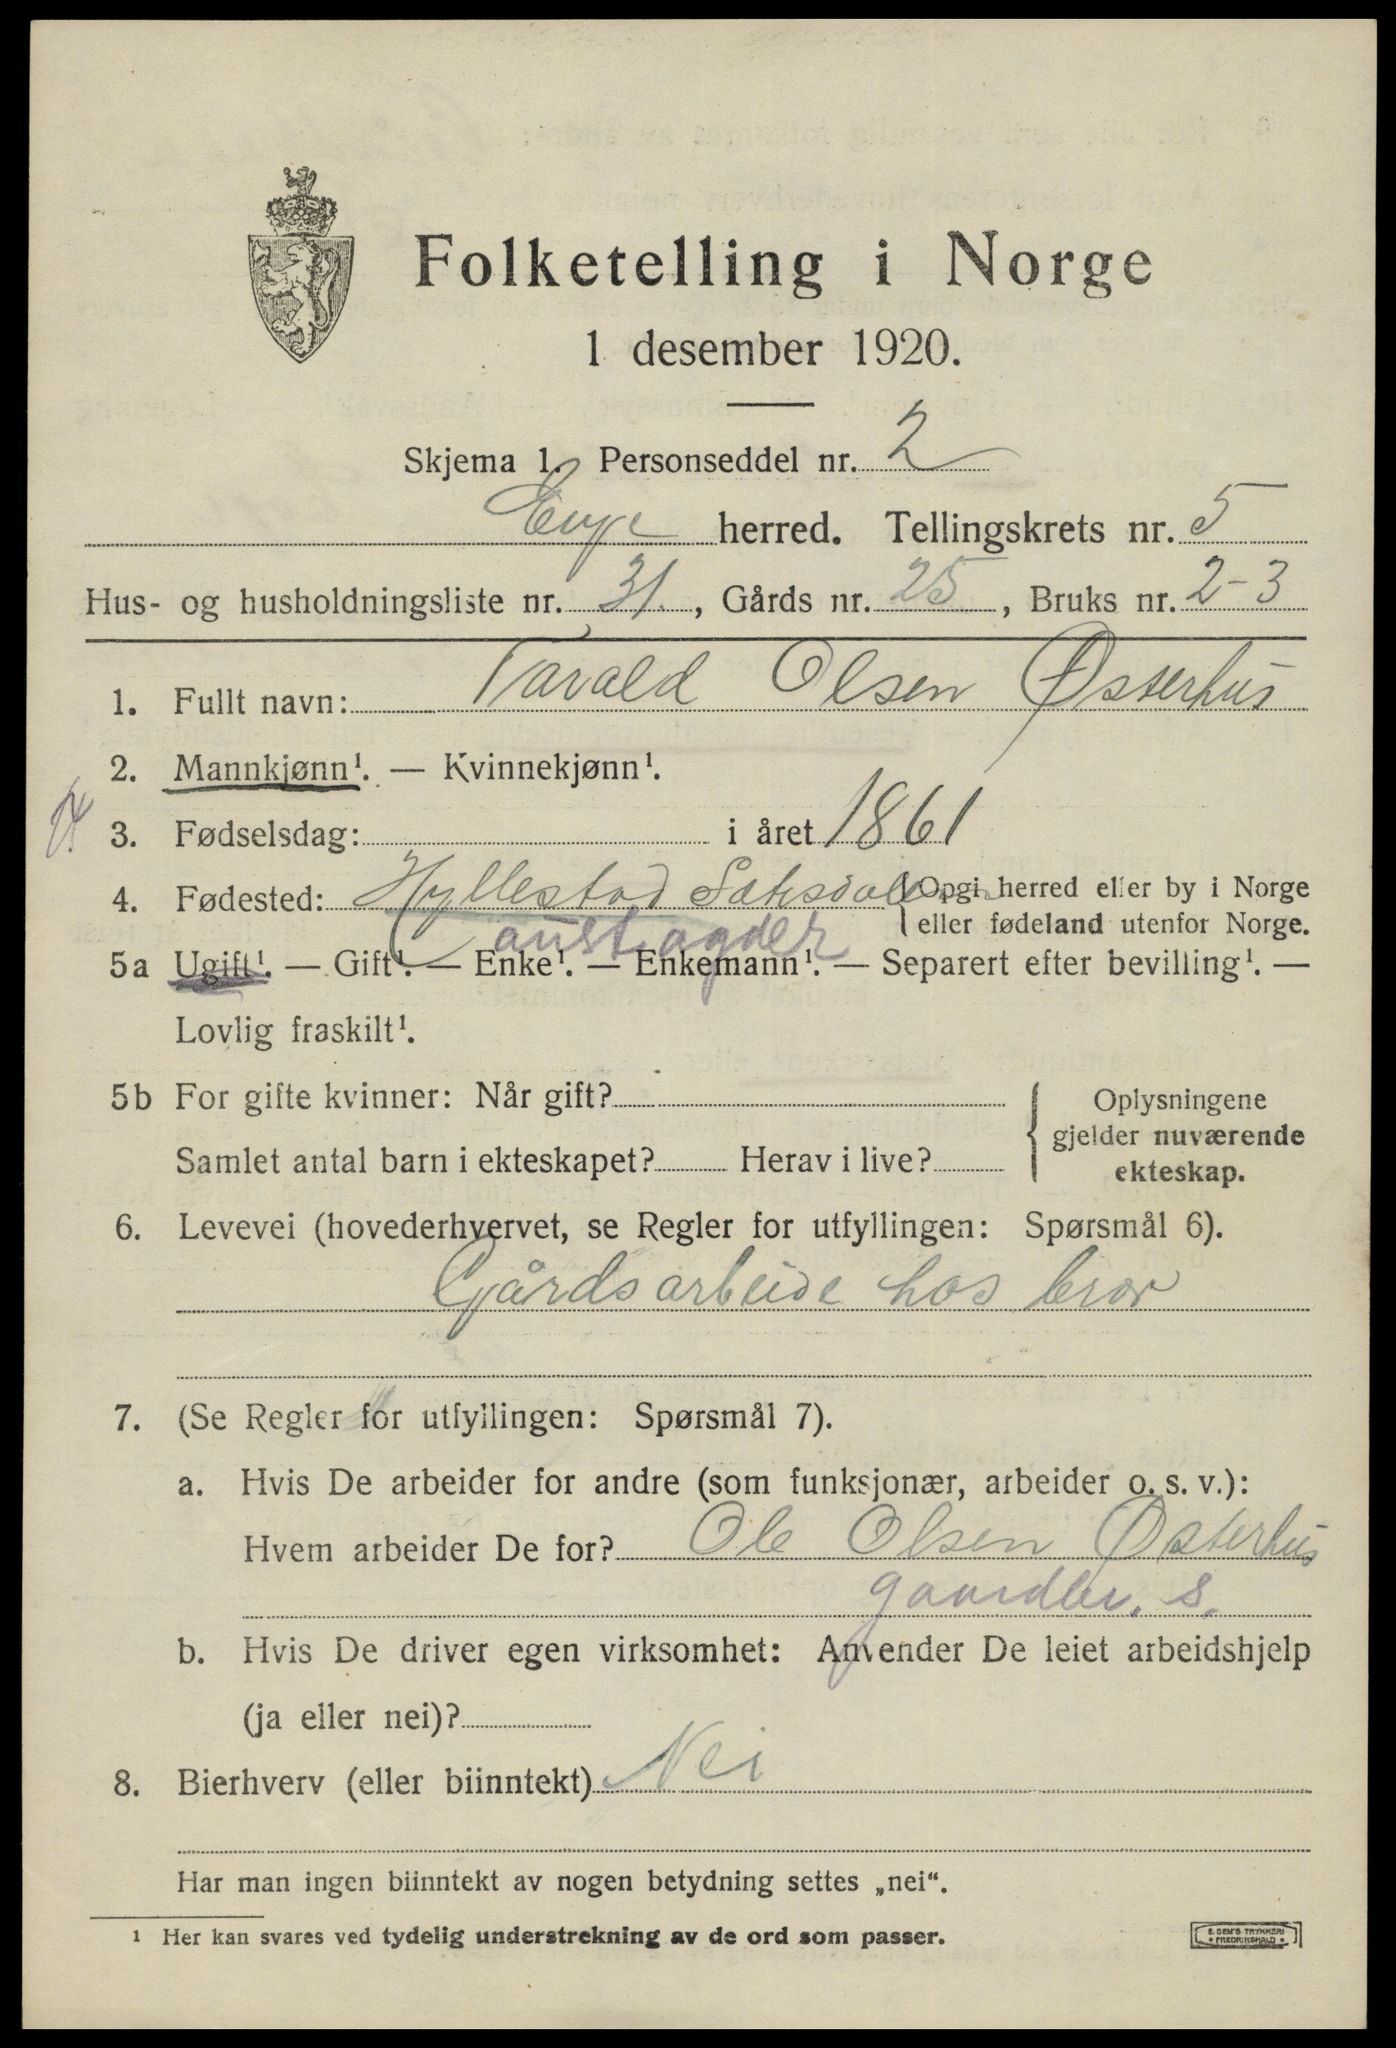 Folketelling i Norge
1 desember 1920.
Skjema 1. Personseddel nr. 2
Evje herred. Tellingskrets nr. 5
Hus- og husholdningsliste nr. 31., Gårds nr. 25, Bruks nr. 2-3
1. Fullt navn: Tarald Olsen Østerhus
2. Mannkjønn¹. — Kvinnekjønn¹.
3. Fødselsdag: i året 1861
4. Fødested: Hyllestad Sætesdalen { Opgi herred eller by i Norge
eller fødeland utenfor Norge.
aust.agder
5a Ugift¹. — Gift¹. — Enke¹. — Enkemann¹. — Separert efter bevilling¹. —
Lovlig fraskilt¹.
5b For gifte kvinner: Når gift?
Samlet antal barn i ekteskapet? Herav i live?
{ Oplysningene
gjelder nuværende
ekteskap.
6. Levevei (hovederhvervet, se Regler for utfyllingen: Spørsmål 6).
Gårdsarbeide hos bror
7. (Se Regler for utfyllingen: Spørsmål 7).
a. Hvis De arbeider for andre (som funksjonær, arbeider o. s. v.):
Hvem arbeider De for? Ole Olsen Østerhus
gaardbr. s.
b. Hvis De driver egen virksomhet: Anvender De leiet arbeidshjelp
(ja eller nei)?
8. Bierhverv (eller biinntekt) Nei
Har man ingen biinntekt av nogen betydning settes „nei“.
¹ Her kan svares ved tydelig understrekning av de ord som passer.
E. SEM'S TRYKKERI
* FREDRIKSHALD *